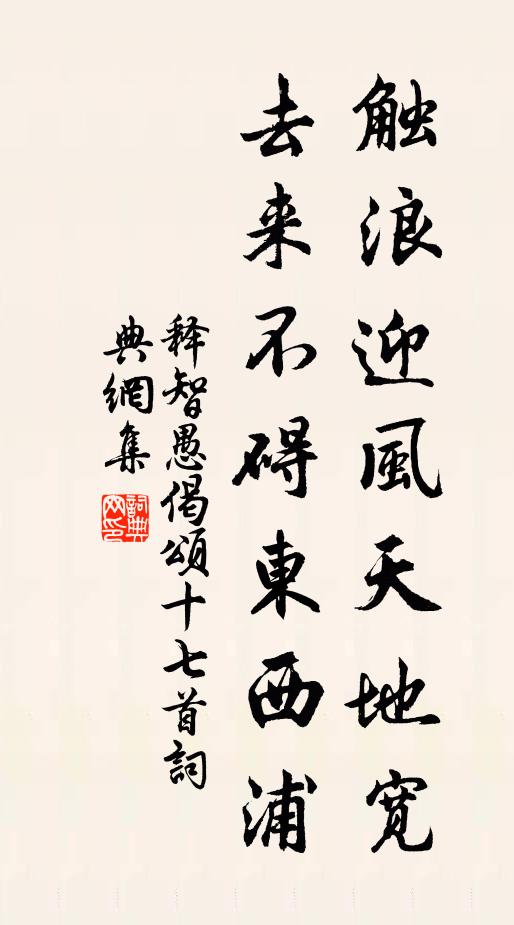 触浪迎風天地宽
去来不碍東西浦
释智愚偈頌十七首詞
典網集
詞典网印